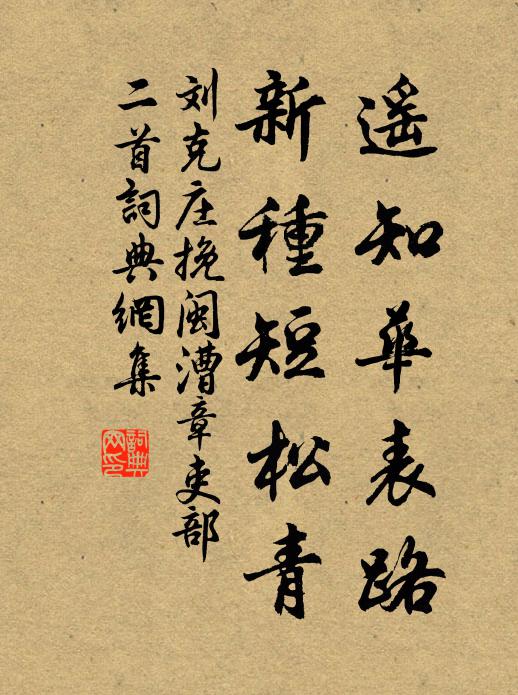 遥知華表路
新種短松青
刘克庄挽闽漕章吏部
二首詞典網集
詞典
网印